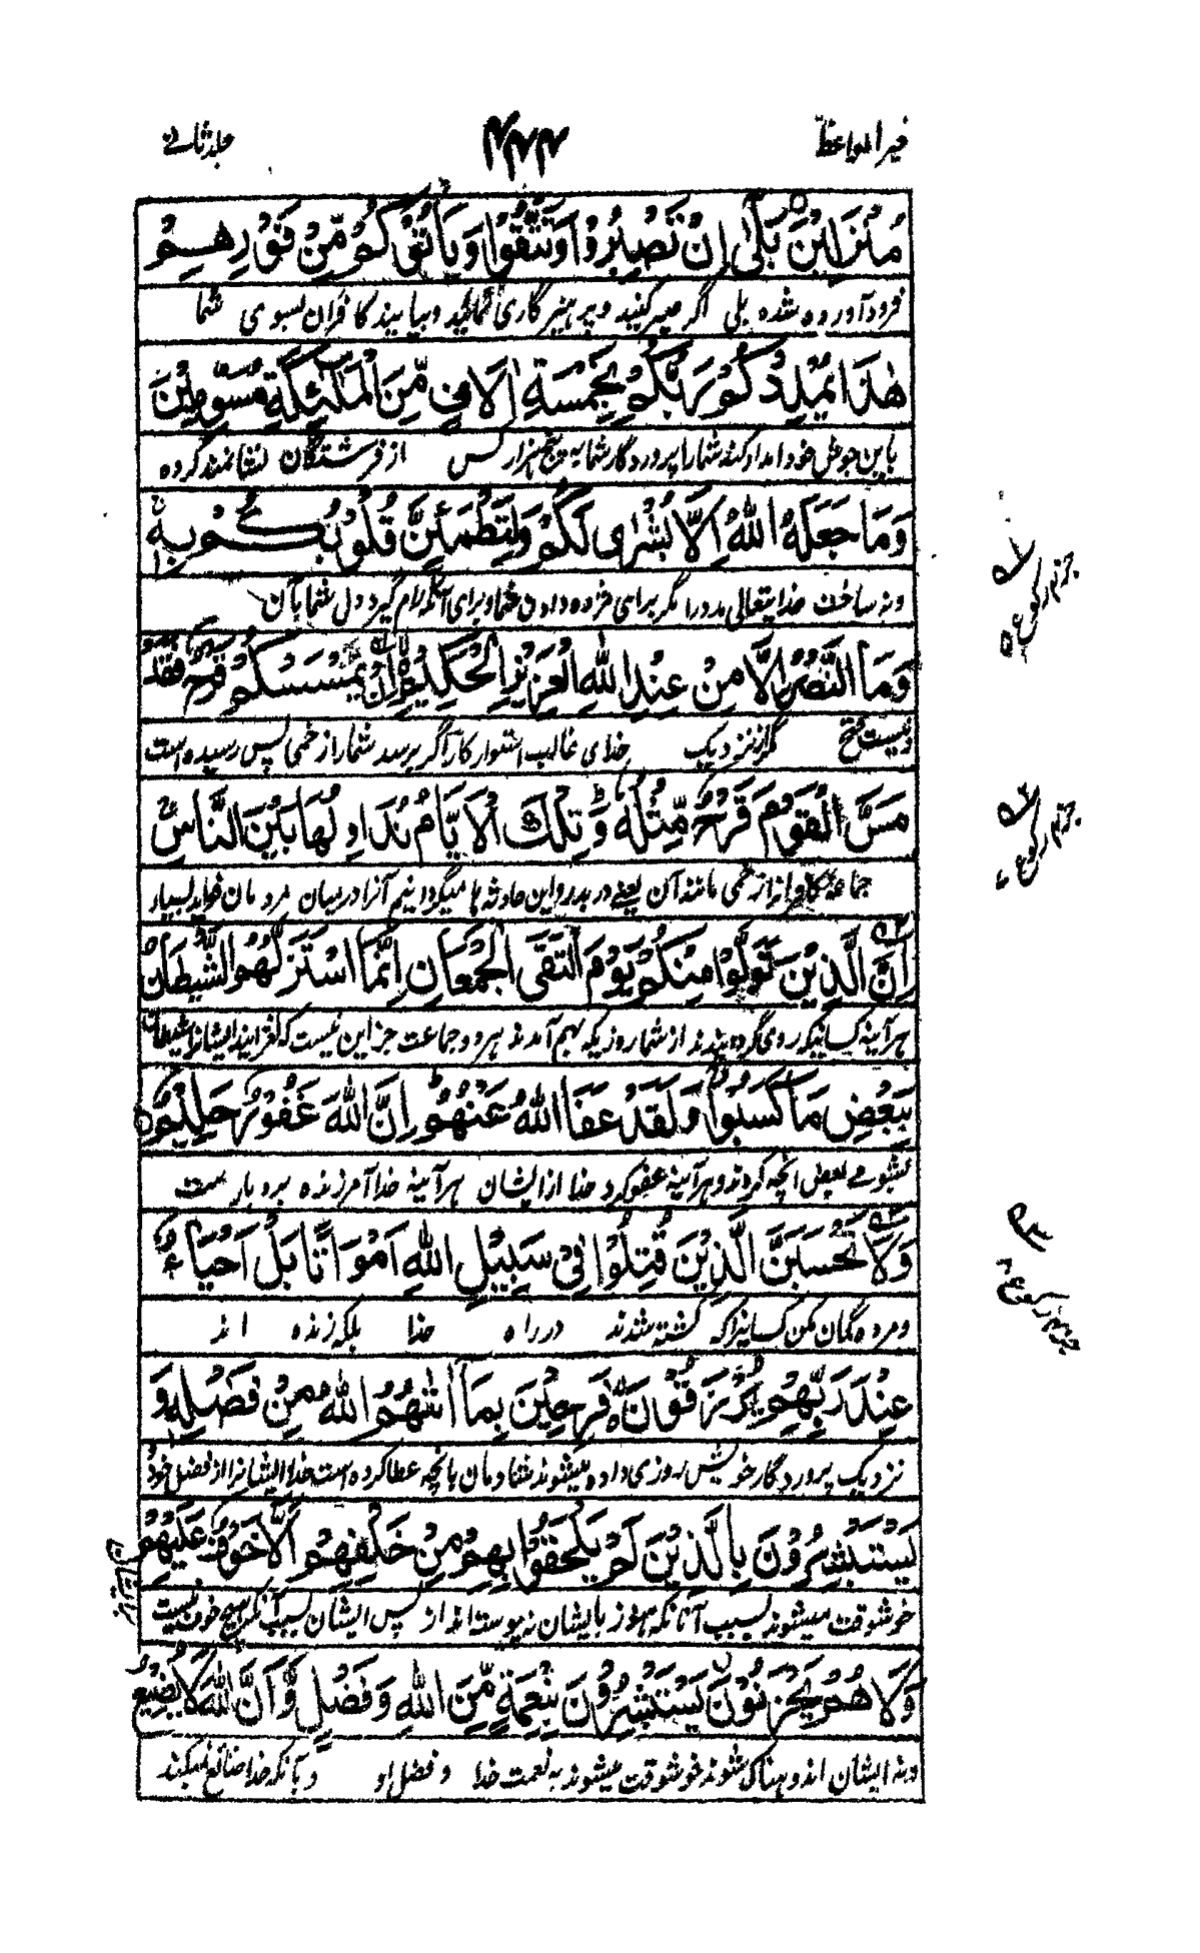 خیر المواعظ ۴۴۴ جلد ثانی
مُنْزَلِیْنَ بَلٰۤی اِنْ تَصْبِرُوْا وَتَتَّقُوْا وَیَاْتُوْكُمْ مِّنْ فَوْرِهِمْ
فرود آورده شده بلی اگر صبر کنید و پرهیزگاری نمائید و بیایند کافران بسوی شما
هٰذَا یُمْدِدْكُمْ رَبُّكُمْ بِخَمْسَةِ اٰلَافٍ مِّنَ الْمَلٰٓئِكَةِ مُسَوِّمِیْنَ
باین جوش خود امداد کند شما را پروردگار شما به پنج هزار کس از فرشتگان نشانمند کرده
وَمَا جَعَلَهُ اللّٰهُ اِلَّا بُشْرٰی لَكُمْ وَلِتَطْمَئِنَّ قُلُوْبُكُمْ بِهٖ
ونه ساخت خدایتعالی مدد را مگر برای مژده دادن شما و برای آنکه آرام گیرد دل شما بآن
وَمَا النَّصْرُ اِلَّا مِنْ عِنْدِ اللّٰهِ الْعَزِیْزِ الْحَكِیْمِ اِنْ یَّمْسَسْكُمْ قَرْحٌ فَقَدْ
ونیست فتح مگر از نزدیک خدای غالب استوار کار اگر برسد شما را زخمی پس رسیده است
مَسَّ الْقَوْمَ قَرْحٌ مِّثْلُهٗ وَتِلْكَ الْاَیَّامُ نُدَاوِلُهَا بَیْنَ النَّاسِ
جماعه کافران را زخمی مانند آن یعنی در بدر و این حادثه ها میگردانیم آنرا درمیان مردمان
اِنَّ الَّذِیْنَ تَوَلَّوْا مِنْكُمْ یَوْمَ الْتَقَی الْجَمْعَانِ اِنَّمَا اسْتَزَلَّهُمُ الشَّیْطٰنُ
هرآینه کسانیکه روی گردانیدند از شما روزیکه بهم آمدند هر دو جماعت جز این نیست که لغزانید ایشانرا شیطان
بِبَعْضِ مَا كَسَبُوْا وَلَقَدْ عَفَا اللّٰهُ عَنْهُمْ اِنَّ اللّٰهَ غَفُوْرٌ حَلِیْمٌ
بشومی بعض آنچه کردند و هرآینه عفو کرد خدا از ایشان هرآینه خدا آمرزنده بردبار است
وَلَا تَحْسَبَنَّ الَّذِیْنَ قُتِلُوْا فِیْ سَبِیْلِ اللّٰهِ اَمْوَاتًا بَلْ اَحْیَآءٌ
ومرده گمان مکن کسانیرا که کشته شدند در راه خدا بلکه زنده اند
عِنْدَ رَبِّهِمْ یُرْزَقُوْنَ فَرِحِیْنَ بِمَاۤ اٰتٰهُمُ اللّٰهُ مِنْ فَضْلِهٖ وَ
نزدیک پروردگار خویش روزی داده میشوند شادمان بآنچه عطا کرده است خدا ایشانرا از فضل خود
یَسْتَبْشِرُوْنَ بِالَّذِیْنَ لَمْ یَلْحَقُوْا بِهِمْ مِنْ خَلْفِهِمْ اَلَّا خَوْفٌ عَلَیْهِمْ
خوشوقت میشوند بسبب آنانکه هنوز بایشان نه پیوسته اند از پس ایشان بسبب آنکه هیچ خوف نیست
وَلَا هُمْ یَحْزَنُوْنَ یَسْتَبْشِرُوْنَ بِنِعْمَةٍ مِّنَ اللّٰهِ وَفَضْلٍ وَّاَنَّ اللّٰهَ لَا یُضِیْعُ
ونه ایشان اندوهناک شوند خوشوقت میشوند به نعمت خدا و فضل او و بآنکه خدا ضائع نمیکند